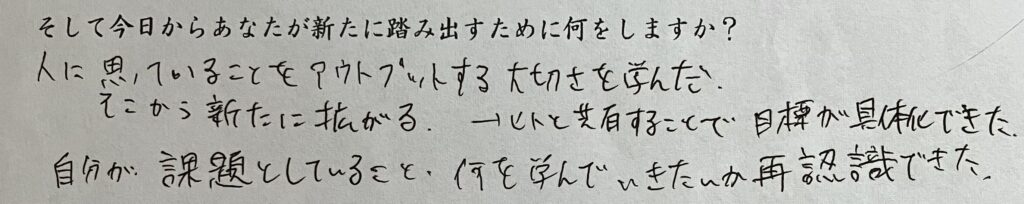 そして今日からあなたが新たに踏み出すために何をしますか？
人に思っていることをアウトプットする大切さを学んだ。
そこから新たに拡がる。→ヒトと共有することで目標が具体化できた。
自分が課題としていること、何を学んでいきたいか再認識できた。